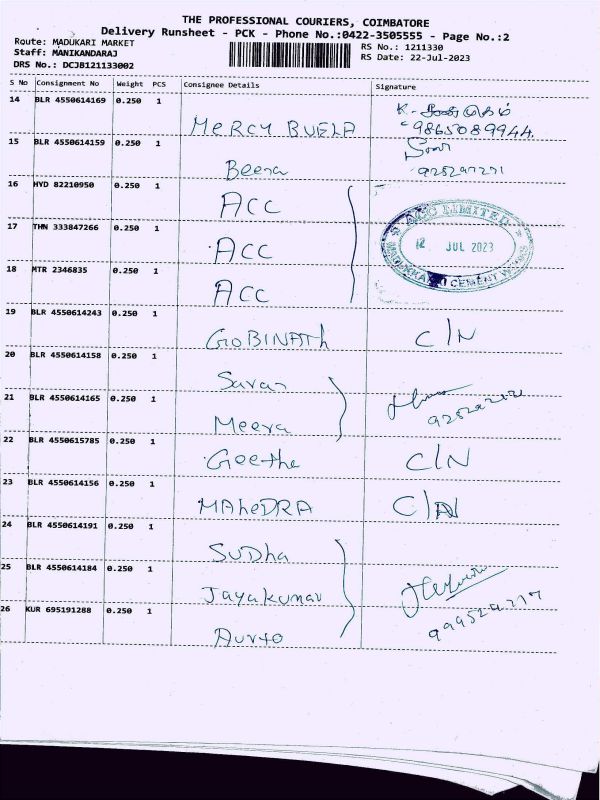 THE PROFESSIONAL COURIERS, COIMBATORE
Delivery Runsheet - PCK - Phone No.:0422-3505555 - Page No.:2
Route: MADUKARI MARKET
Staff: MANIKANDARAJ
DRS No.: DCJ8121133002
RS No.: 1211330
RS Date: 22-Jul-2023
S No Consignment No Weight PCS Consignee Details Signature
14 BLR 4550614169 0.250 1 MERCY BUELA
9865089944.
15 BLR 4550614159 0.250 1 Beena
16 HYD 82210950 0.250 1 ACC
17 THN 333847266 0.250 1 ACC
18 MTR 2346835 0.250 1 ACC
ACC LIMITED
12 JUL 2023
CEMENT WORKS
19 BLR 4550614243 0.250 1 GOBINATH C/N
20 BLR 4550614158 0.250 1 Savan
21 BLR 4550614165 0.250 1 Meera
22 BLR 4550615785 0.250 1 Geetha C/N
23 BLR 4550614156 0.250 1 MAHEDRA C/N
24 BLR 4550614191 0.250 1 SUDha
25 BLR 4550614184 0.250 1 Jayakumar
26 KUR 695191288 0.250 1